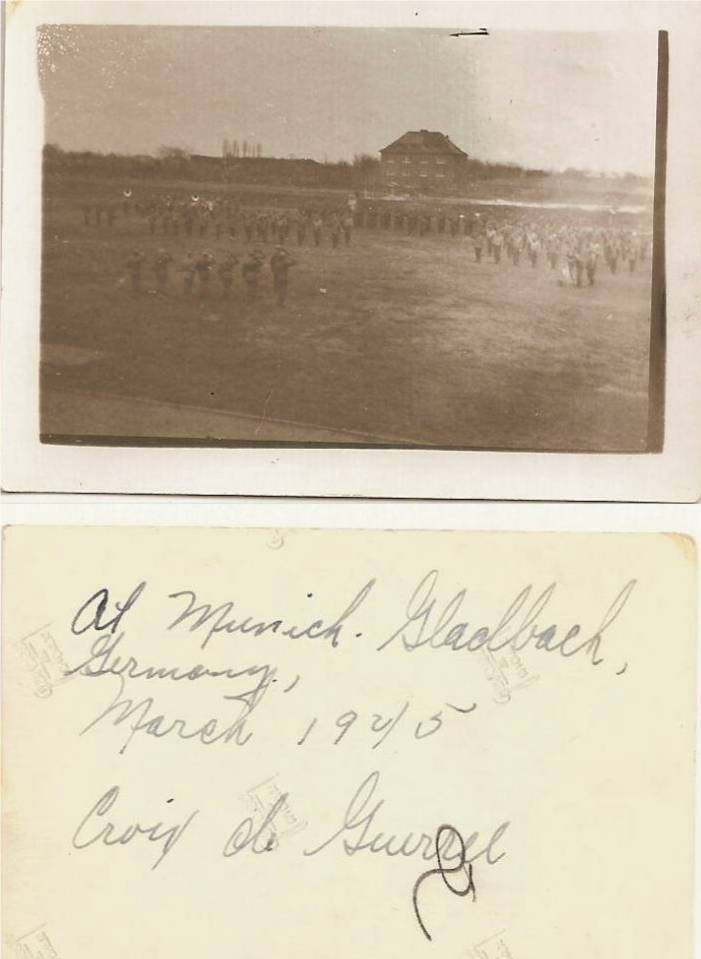 At Munich. Gladbach,
Germany,
March 1945
Croix de Guerre